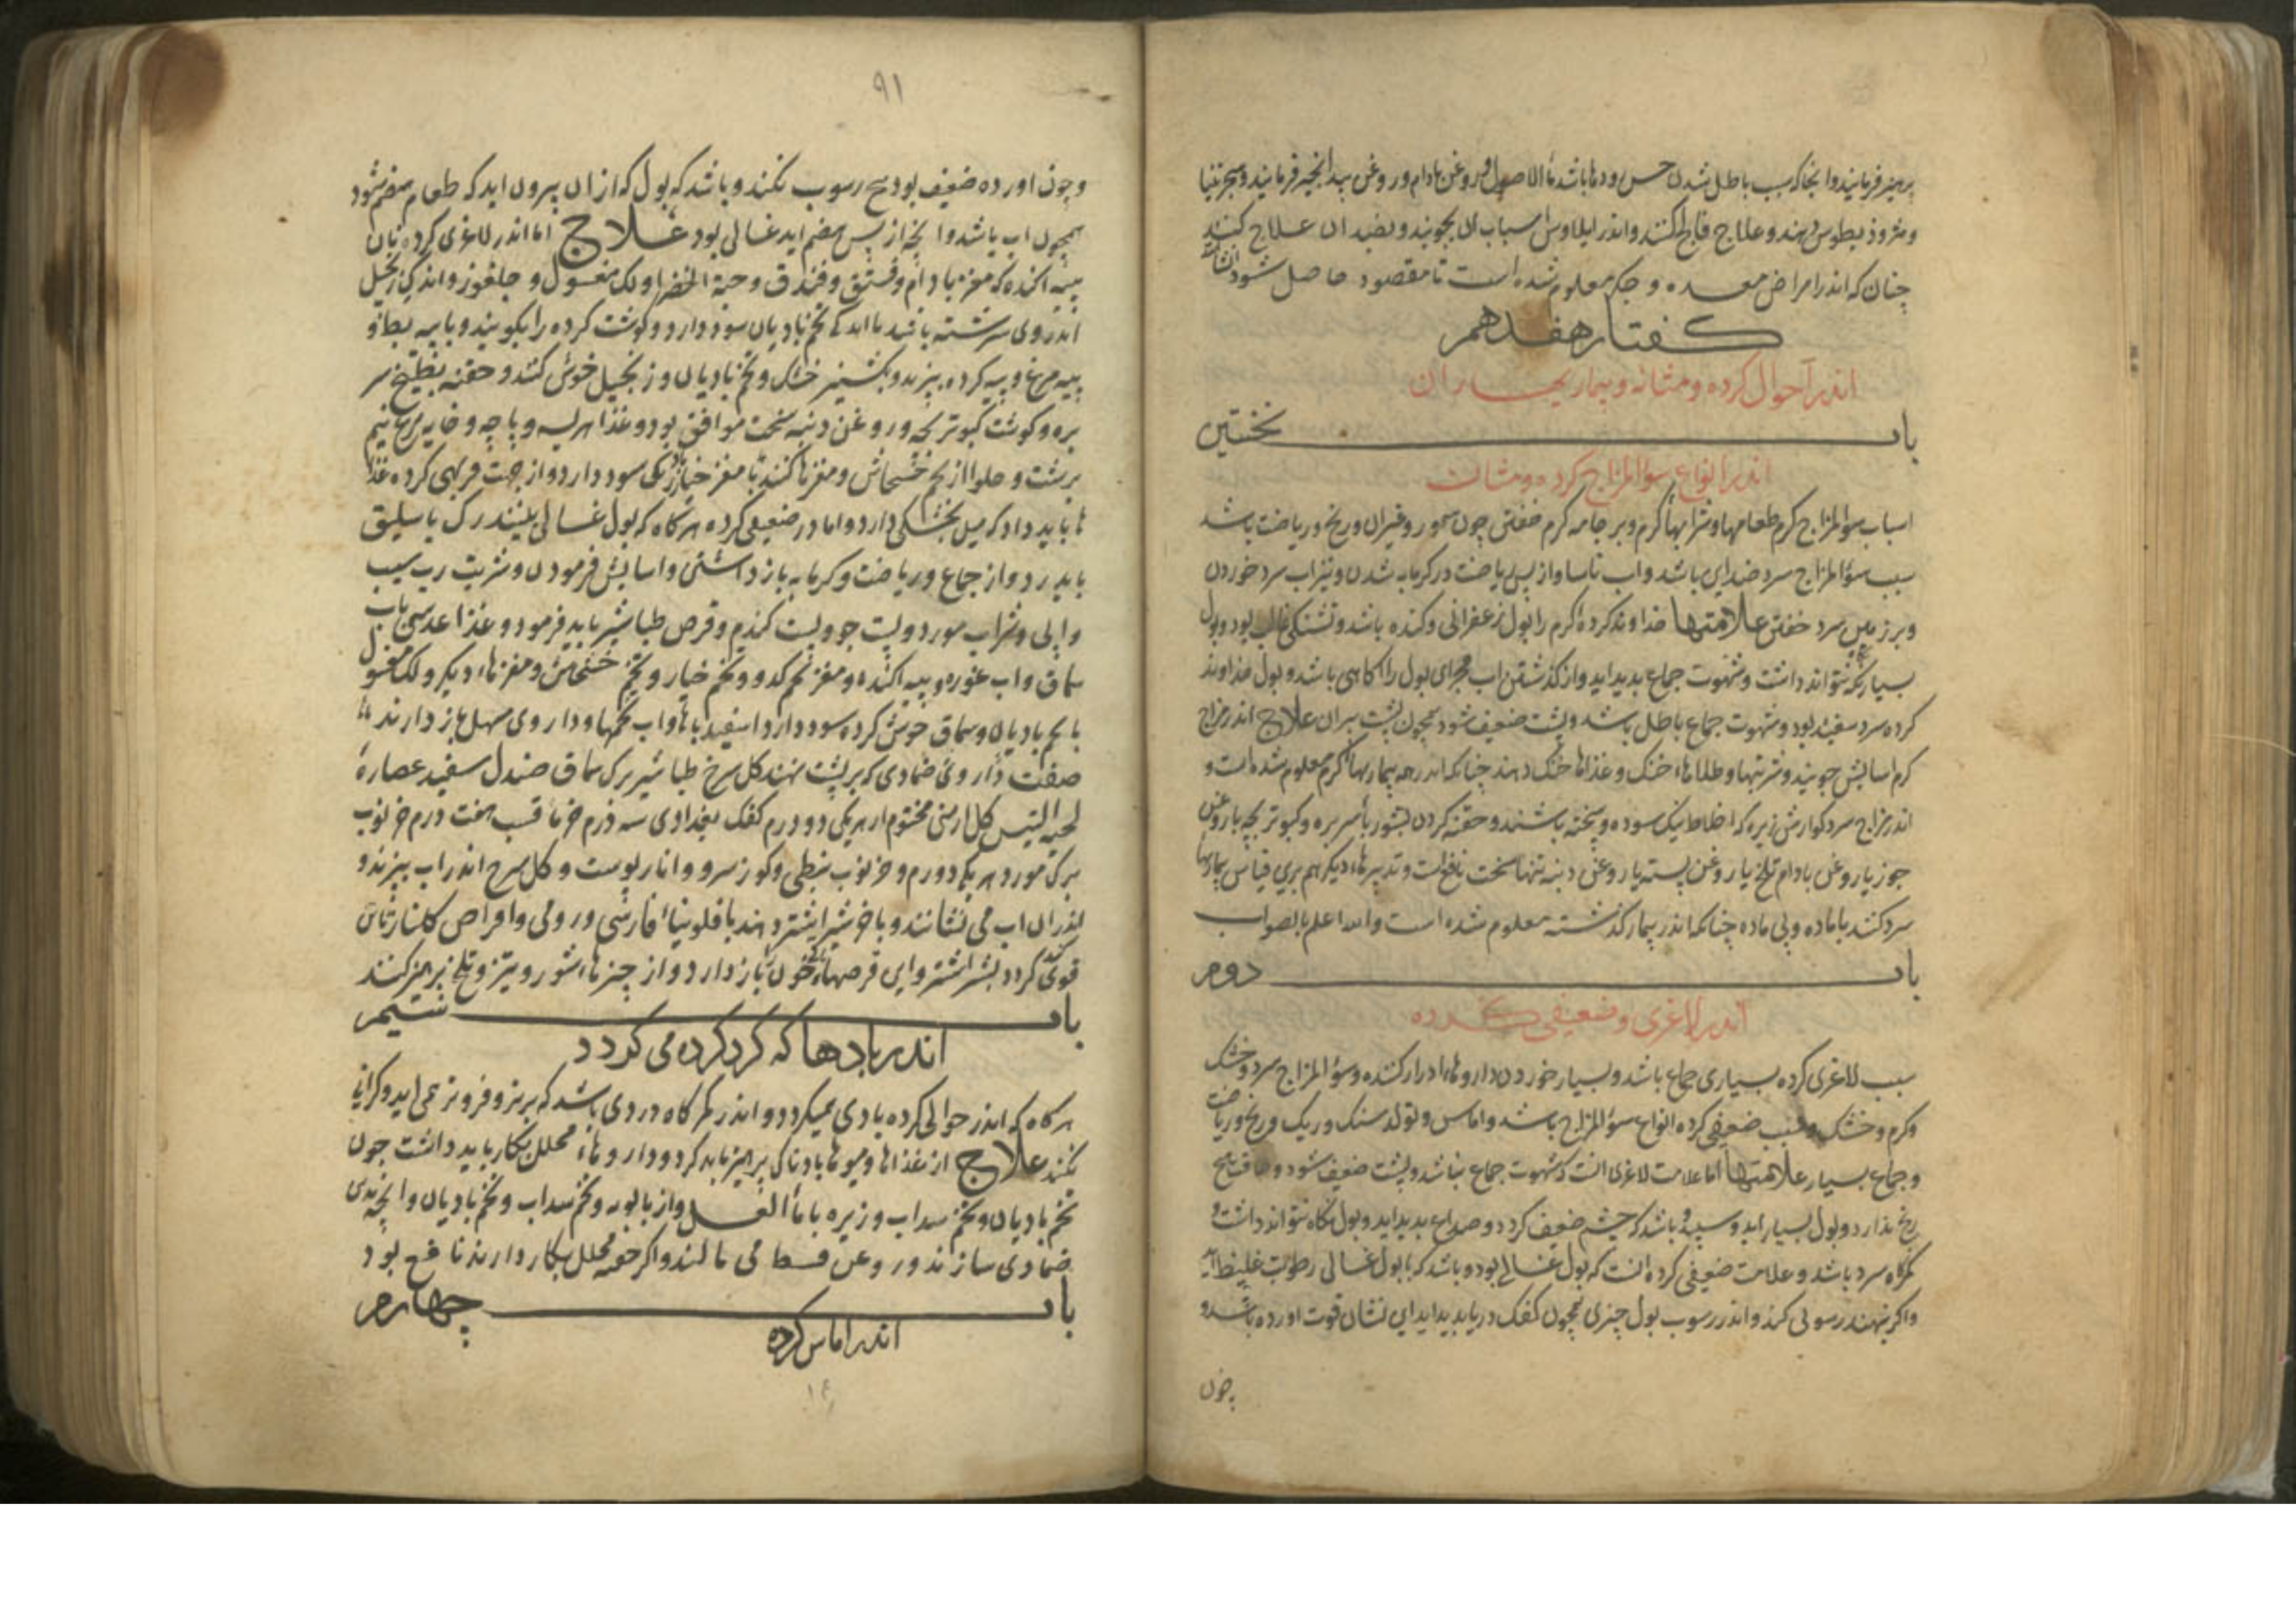 پرهیز فرمایند وانجا که سبب باطل شدن حس رودها باشد ماء الاصول و روغن بادام و روغن بیدانجیر فرمایند و سجزینیا
و مثرودیطوس دهند و علاج فالج کنند و اندر ایلاوس اسباب ان بجویند و بضد ان علاج کنند
چنان که اندر امراض معده و جکر معلوم شده است تا مقصود حاصل شود
کفتار هفدهم
اندر احوال کرده و مثانه و بیماریهاء ان
باب نخستین
اندر انواع سوء المزاج کرده و مثانه
اسباب سوء المزاج کرم طعامها و شرابهاء کرم و بر جامه کرم خفتن چون سمور و غیر ان و رنج و ریاضت باشد
سبب سوء المزاج سرد ضد این باشد و اب ناشتا و از پس ریاضت در کرمابه شدن و شراب سرد خوردن
و بر زمین سرد خفتن علامتها خداوند کرده کرم را بول زعفرانی و کنده باشد و تشنکی غالب بود و بول
بسیار نکه نتواند داشت و شهوت جماع بدید اید و از کذشتن اب مجرای بول را اکاهی باشد و بول خداوند
کرده سرد سفید بود و شهوت جماع باطل باشد و پشت ضعیف شود همچون پشت پیران علاج اندر مزاج
کرم اسایش جویند و شربتها و طلاهاء خنک و غذاها خنک دهند چنانکه اندر همه بیماریهاء کرم معلوم شده است و
اندر مزاج سرد کوارش زیره که اخلاط نیک سوده و پخته باشند و حقنه کردن بشوربا سر بره و کبوتر بچه با روغن
جوز یا روغن بادام تلخ یا روغن پسته یا روغن دنبه تنها سخت نافع است و تدبیرهاء دیکر هم برین قیاس بیماریها
سرد کنند با ماده و بی ماده چنانکه اندر بیمار کذشته معلوم شده است والله اعلم بالصواب
باب دوم
اندر لاغری و ضعیفی کرده
سبب لاغری کرده بسیاری جماع باشد و بسیار خوردن داروهاء ادرار کننده و سوء المزاج سرد و خشک
و کرم و خشک و سبب ضعیفی کرده انواع سوء المزاج باشد و اماس و تولد سنک و ریک و رنج و ریاضت
و جماع بسیار علامتها اما علامت لاغری انست که شهوت جماع نباشد و پشت ضعیف شود و طاقت هیچ
رنج ندارد و بول بسیار اید و سپید و باشد که چشم ضعیف کردد و صداع بدید اید و بول نکاه نتواند داشت و
کمرکاه سرد باشد و علامت ضعیفی کرده انست که بول غسالی بود و باشد که با بول غسالی رطوبت غلیظ اید
و اکر بنهند رسوبی کند و اندر رسوب بول چیزی همچون کفک دریا بدید اید این نشان قوت اورده باشد و
چون
۹۱
و چون اورده ضعیف بود هیچ رسوب نکند و باشد که بول که از ان بیرون اید که طعام هضم شود
همچون اب باشد و انچه از پس هضم اید غسالی بود علاج اما اندر لاغری کرده نان
بپیه اکنده که مغز بادام و فستق و فندق و حبة الخضرا و لک مغسول و جلغوز و اندکی زنجبیل
اندر وی سرشته باشد با اندکی تخم بادیان سود دارد و کوشت کرده را بکوبند و با پیه بط و
پیه مرغ و پیه کرده بپزند و بکشنیز خشک و تخم بادیان و زنجبیل خوش کنند و حقنه بطبیخ سر
بره و کوشت کبوتر بچه و روغن دنبه سخت موافق بود و غذا هریسه و پاچه و خایه مرغ نیم
برشت و حلوا از تخم خشخاش و مغزها کنند با مغز خیارزنک سود دارد و از جهت فربهی کرده غذا
ها باید داد که میل بخشکی دارد و اما در ضعیفی کرده هر کاه که بول غسالی بینند رک باسلیق
باید زد و از جماع و ریاضت و کرمابه باز داشتن و اسایش فرمودن و شربت رب سیب
و ابی و شراب مورد و پست جو و پست کندم و قرص طباشیر باید فرمود و غذا عدس باب
سماق و اب غوره و پیه اکنده و مغز تخم کدو و تخم خیار و تخم خشخاش و مغزهاء دیکر و لک مغسول
با تخم بادیان و سماق خوش کرده سود دارد اسفیدباها و اب تخمها و داروی مسهل باز دارند
صفت داروی ضمادی که بر پشت نهند کل سرخ طباشیر برک سماق صندل سفید عصاره
لحیة التیس کل ارمنی مختوم از هر یکی دو درم کفک بغدادی سه درم خرما قسب هفت درم خرنوب
برک مورد هر یکی دو درم و خرنوب نبطی و کوز سرو و انار پوست و کل سرخ اندر اب بپزند و
اندر ان اب می نشانند و باخر شیر اشتر دهند با فلونیاء فارسی و رومی و اقراص کلنار تا ان
قوی کردد بشیر اشتر و این قرصها که خون باز دارد و از چیزهاء شور و تیز و تلخ پرهیز کنند
باب سیم
اندر بادها که کرد کرده می کردد
هر کاه که اندر حوالی کرده بادی میکردد و اندر کمر کاه دردی باشد که برتر و فروتر می اید و کرانی
نکند علاج از غذاها و میوهاء بادناک پرهیز باید کرد و داروهاء محلل بکار باید داشت چون
تخم بادیان و تخم سداب و زیره با ماء العسل و از بابونه و تخم سداب و تخم بادیان و انچه بدین
ضمادی سازند و روغن قسط می مالند و اکر حقنه محلل بکار دارند نافع بود
باب چهارم
اندر اماس کرده